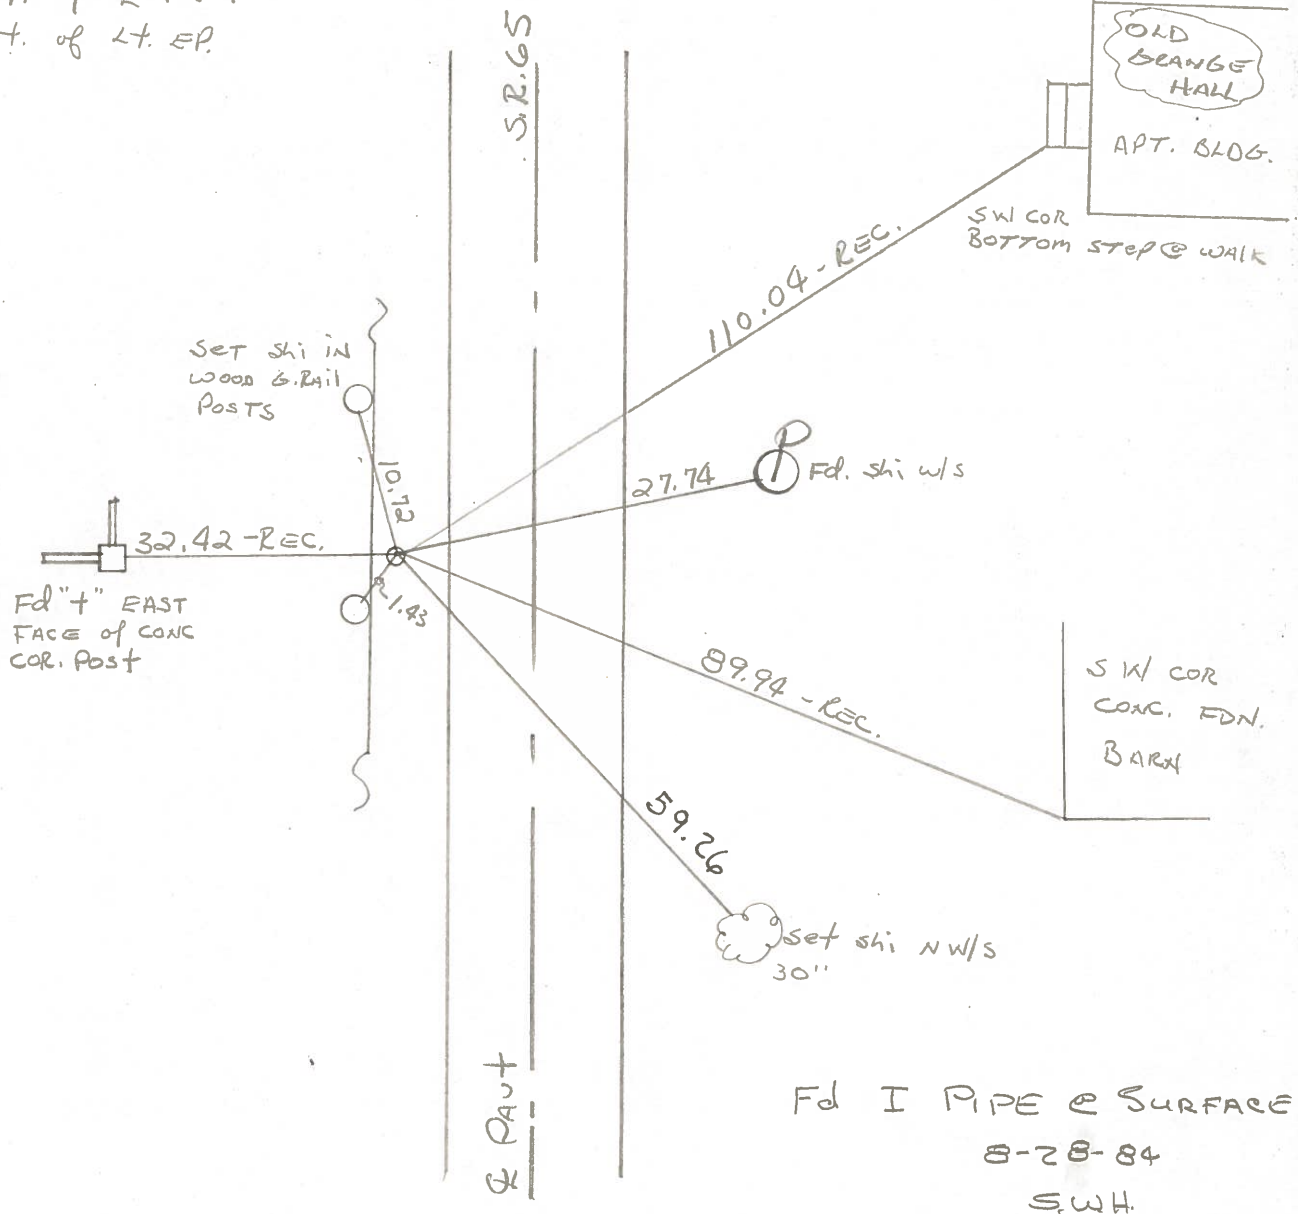 t. of Lt. EP.
S.R.65
OLD
GRANGE
HALL
APT. BLDG.
SW COR
BOTTOM STEP @ WALK
110.04-REC.
SET Shi iN
WOOD G.RAil
POSTS
10.72
27.74
Fd. Shi w/s
32.42-REC.
Fd "+" EAST
FACE of CONC
COR. POST
1.43
89.94-REC.
SW COR
CONC. FDN.
BARN
59.26
Set Shi NW/S
30"
℄ PAVT
Fd I PIPE @ SURFACE
8-28-84
S.W.H.